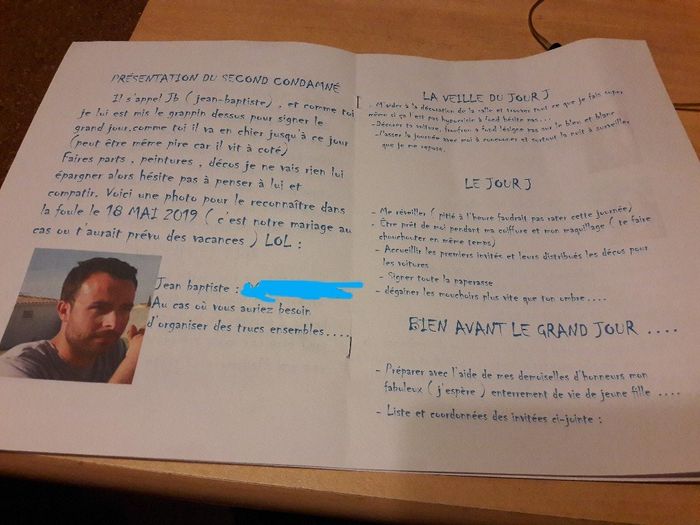 PRÉSENTATION DU SECOND CONDAMNÉ
Il s'appel Jb ( jean-baptiste) , et comme toi
je lui est mis le grappin dessus pour signer le
grand jour.comme toi il va en chier jusqu'à ce jour
(peut être même pire car il vit à coté)
Faires parts , peintures , décos je ne vais rien lui
épargner alors hésite pas à penser à lui et
compatir. Voici une photo pour le reconnaître dans
la foule le 18 MAI 2019 ( c'est notre mariage au
cas ou t'aurait prévu des vacances ) LOL :
Jean baptiste :
Au cas où vous auriez besoin
d'organiser des trucs ensembles....
LA VEILLE DU JOUR J
- M'aider à la décoration de la salle et trouver tout ce que je fais super
même si ça l'est pas hypocrisie à fond hésite pas...
-Décorer ta voiture, froufrou à fond lésigne pas sur le bleu et blanc
-Passer la journée avec moi à et surtout la nuit à surveiller
que je me repose.
LE JOUR J
- Me réveiller ( pitié à l'heure faudrait pas rater cette journée)
- Être prêt de moi pendant ma coiffure et mon maquillage ( te faire
chouchouter en même temps)
- Accueillir les premiers invités et leurs distribués les décos pour
les voitures
- Signer toute la paperasse
- dégainer les mouchoirs plus vite que ton ombre....
BIEN AVANT LE GRAND JOUR ....
- Préparer avec l'aide de mes demoiselles d'honneurs mon
fabuleux ( j'espère ) enterrement de vie de jeune fille ....
- Liste et coordonnées des invitées ci-jointe :